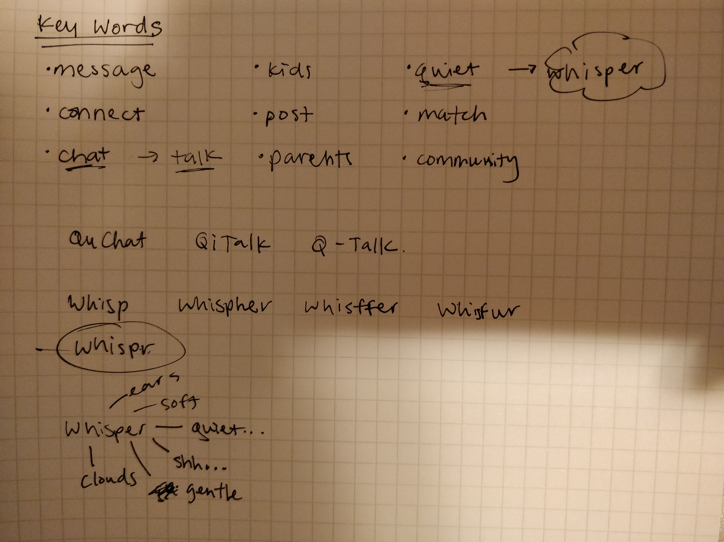 Key Words
·message ·kids ·quiet → whisper
·connect ·post ·match
·chat → talk ·parents ·community
QuChat QiTalk Q-Talk.
Whisp whispher whisffer Whisfur
- whispr
ears
soft
Whisper — quiet...
shh...
clouds gentle